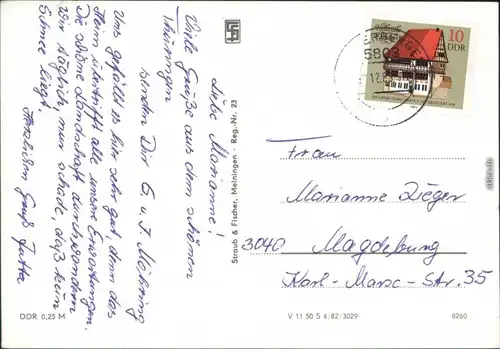 Liebe Marianne!
Viele Grüße aus dem schönen
Thüringen
senden Dir G. u. J. Möhring
Uns gefällt es hier sehr gut, denn das
Heim übertrifft alle unsere Erwartungen.
Die schöne Landschaft durchwandern
wir täglich, nur schade, daß kein
Schnee liegt.
Herzlichen Gruß Jutta
DDR 0,25 M
Straub & Fischer, Meiningen - Reg.-Nr. 23
V 11 50 S 4/82/3029
8260
10
DDR
Frau
Marianne Zieger
3040 Magdeburg
Karl-Marx-Str. 35